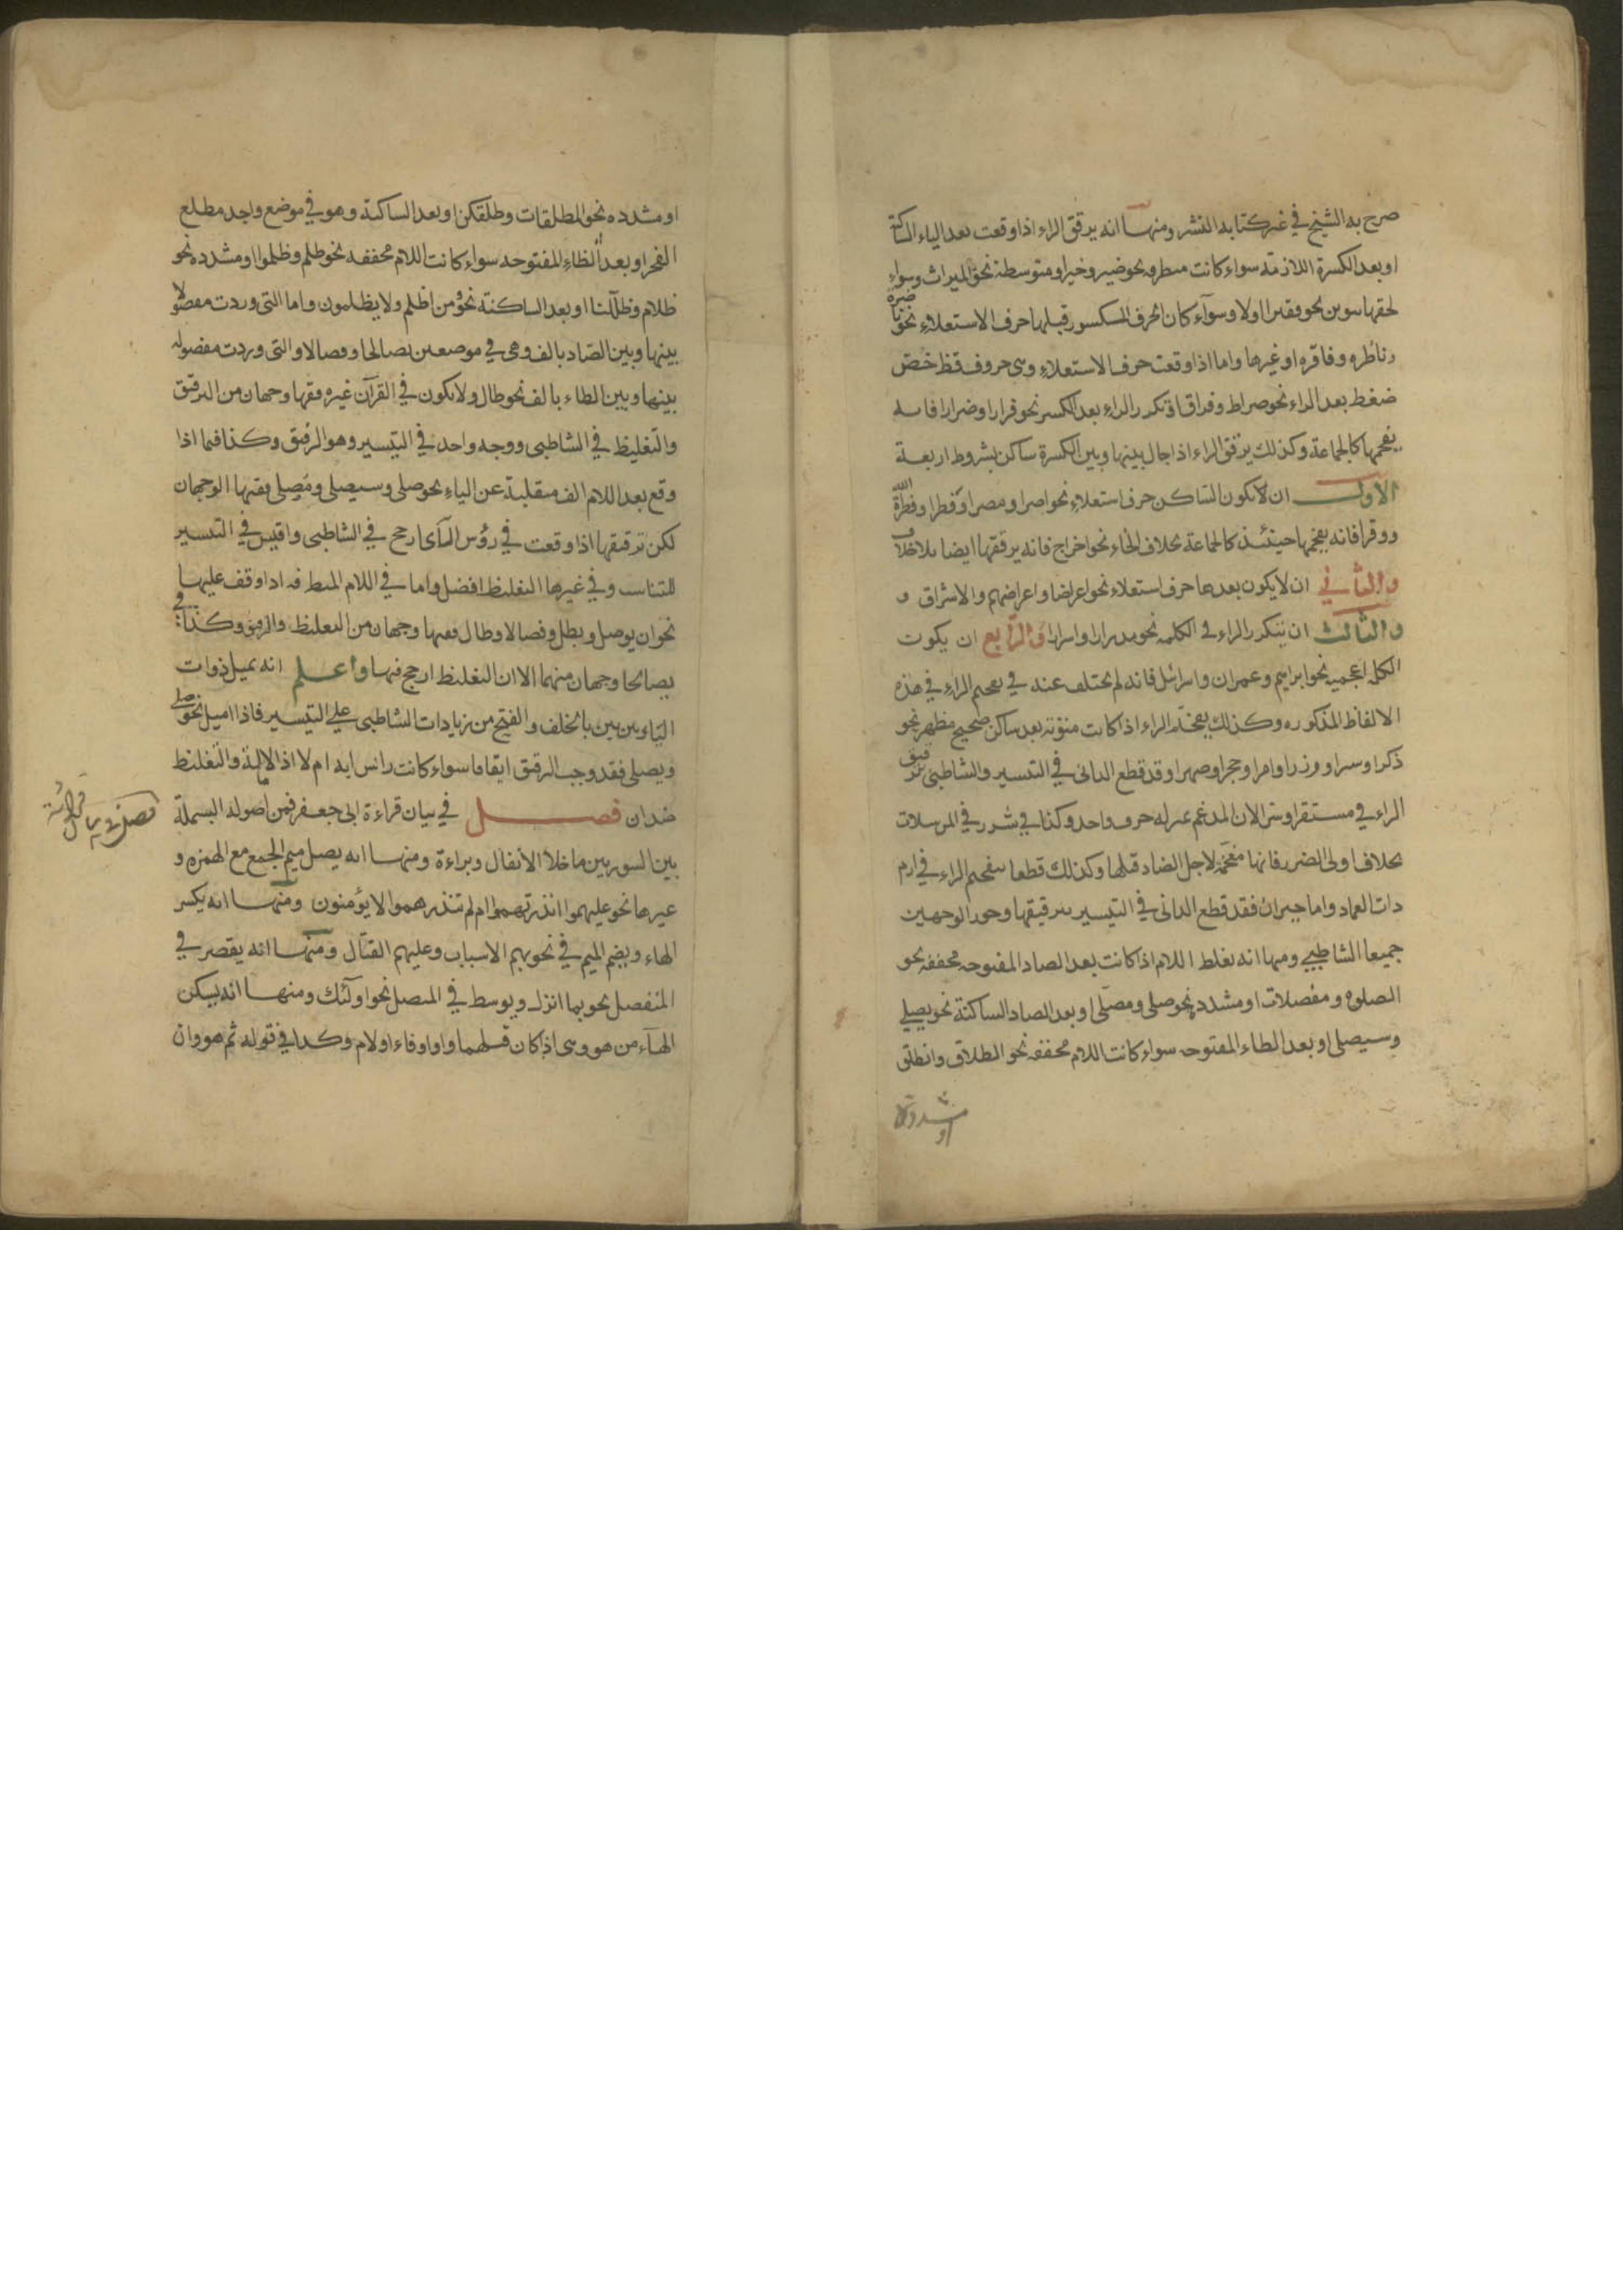 صرح به الشيخ في غير كتابه النشر ومنها انه يرقق الراء اذا وقعت بعد الياء الساكنة
او بعد الكسرة اللازمة سواء كانت متطرفه نحو ضير وخير او متوسطة نحو الميراث وسواء
لحقها تنوين نحو فقيرا اولا وسوآء كان الحرف المكسور قبلها حرف الاستعلاء نحو
ناضرة
وناظره وفاقره او غيرها واما اذا وقعت حرف الاستعلاء وهي حروف قظ خص
ضغط بعد الراء نحو صراط وفراق او تكرر الراء بعد الكسر نحو فرارا وضرارا فانه
يفخمها كالجماعة وكذلك يرقق الراء اذا حال بينها وبين الكسرة ساكن بشروط اربعة
الاول ان لا يكون الساكن حرف استعلاء نحو اصرا ومصرا وقطرا وفطرة الله
ووقرا فانه يفخمها حينئذ كالجماعة بخلاف الخاء نحو اخراج فانه يرققها ايضا بلا خلاف
والثاني ان لا يكون بعدها حرف استعلاء نحو اعراضا واعراضهم والاشراق و
والثالث ان يتكرر الراء في الكلمه نحو مدرارا واسرارا والرابع ان يكون
الكلمه اعجميه نحو ابراهيم وعمران واسرائل فانه لم يختلف عنه في تفخيم الراء في هذه
الالفاظ المذكوره وكذلك يفخم الراء اذا كانت منونة بعد ساكن صحيح مظهر نحو
ذكرا وسترا ووزرا وامرا وحجرا وصهرا وقد قطع الدانى في التيسير والشاطبي ترقيق
الراء في مستقرا وسرا لان المدغم بمنزله حرف واحد وكذا في بشرر في المرسلات
بخلاف اولى الضرر فانها مفخمة لاجل الضاد قبلها وكذلك قطعا بتفخيم الراء في ارم
ذات العماد واما حيران فقد قطع الدانى في التيسير بترقيقها وجوز الوجهين
جميعا الشاطبي ومنها انه يغلظ اللام اذا كانت بعد الصاد المفتوحه مخففه نحو
الصلوة ومفصلات او مشدده نحو صلى ومصلى او بعد الصاد الساكنة نحو يصلي
وسيصلى او بعد الطاء المفتوحه سواء كانت اللام مخففه نحو الطلاق وانطلق
او مشددة
او مشدده نحو المطلقات وطلقكن او بعد الساكنة وهو في موضع واحد مطلع
الفجر او بعد الظاء المفتوحه سواء كانت اللام مخففه نحو ظلم وظلموا او مشدده نحو
ظلام وظللنا او بعد الساكنة نحو من اظلم ولا يظلمون واما التى وردت مفصولا
بينها وبين الصاد بالف وهى في موضعين يصالحا وفصالا والتى وردت مفصوله
بينها وبين الطاء بالف نحو طال ولا يكون في القرآن غيره ففيها وجهان من الترقيق
والتغليظ في الشاطبى ووجه واحد في التيسير وهو الرقيق وكذا فيما اذا
وقع بعد اللام الف منقلبة عن الياء نحو صلى وسيصلى ومصلى ففيها الوجهان
لكن ترقيقها اذا وقعت في رؤس الآى ارجح في الشاطبى واقيس في التيسير
للتناسب وفي غيرها التغليظ افضل واما في اللام المتطرفه اذا وقف عليها
نحو ان يوصل وبطل وفصالا وطال ففيها وجهان من التغليظ والرقيق وكذا في
يصالحا وجهان منهما الا ان التغليظ ارجح فيها واعلم انه يميل ذوات
الياء بين بين بالخلف والفتح من زيادات الشاطبى على التيسير فاذا اميل نحو صلى
ويصلى فقد وجب الرقيق ايقاما سواء كانت راس ايه ام لا اذ الامالة والتغليظ
ضدان فصل في بيان قراءة ابى جعفر فمن اصوله البسملة
بين السورتين ما خلا الانفال وبراءة ومنها انه يصل ميم الجمع مع الهمزه و
غيرها نحو عليهموا انذرتهموا ام لم تنذرهموا لا يؤمنون ومنها انه يكسر
الهاء ويضم الميم في نحو بهم الاسباب وعليهم القتال ومنها انه يقصر في
المنفصل نحو بما انزل ويوسط في المتصل نحو اولئك ومنها انه يسكن
الهآء من هو وهى اذا كان قبلهما واو او فاء او لام وكذا في قوله ثم هو وان